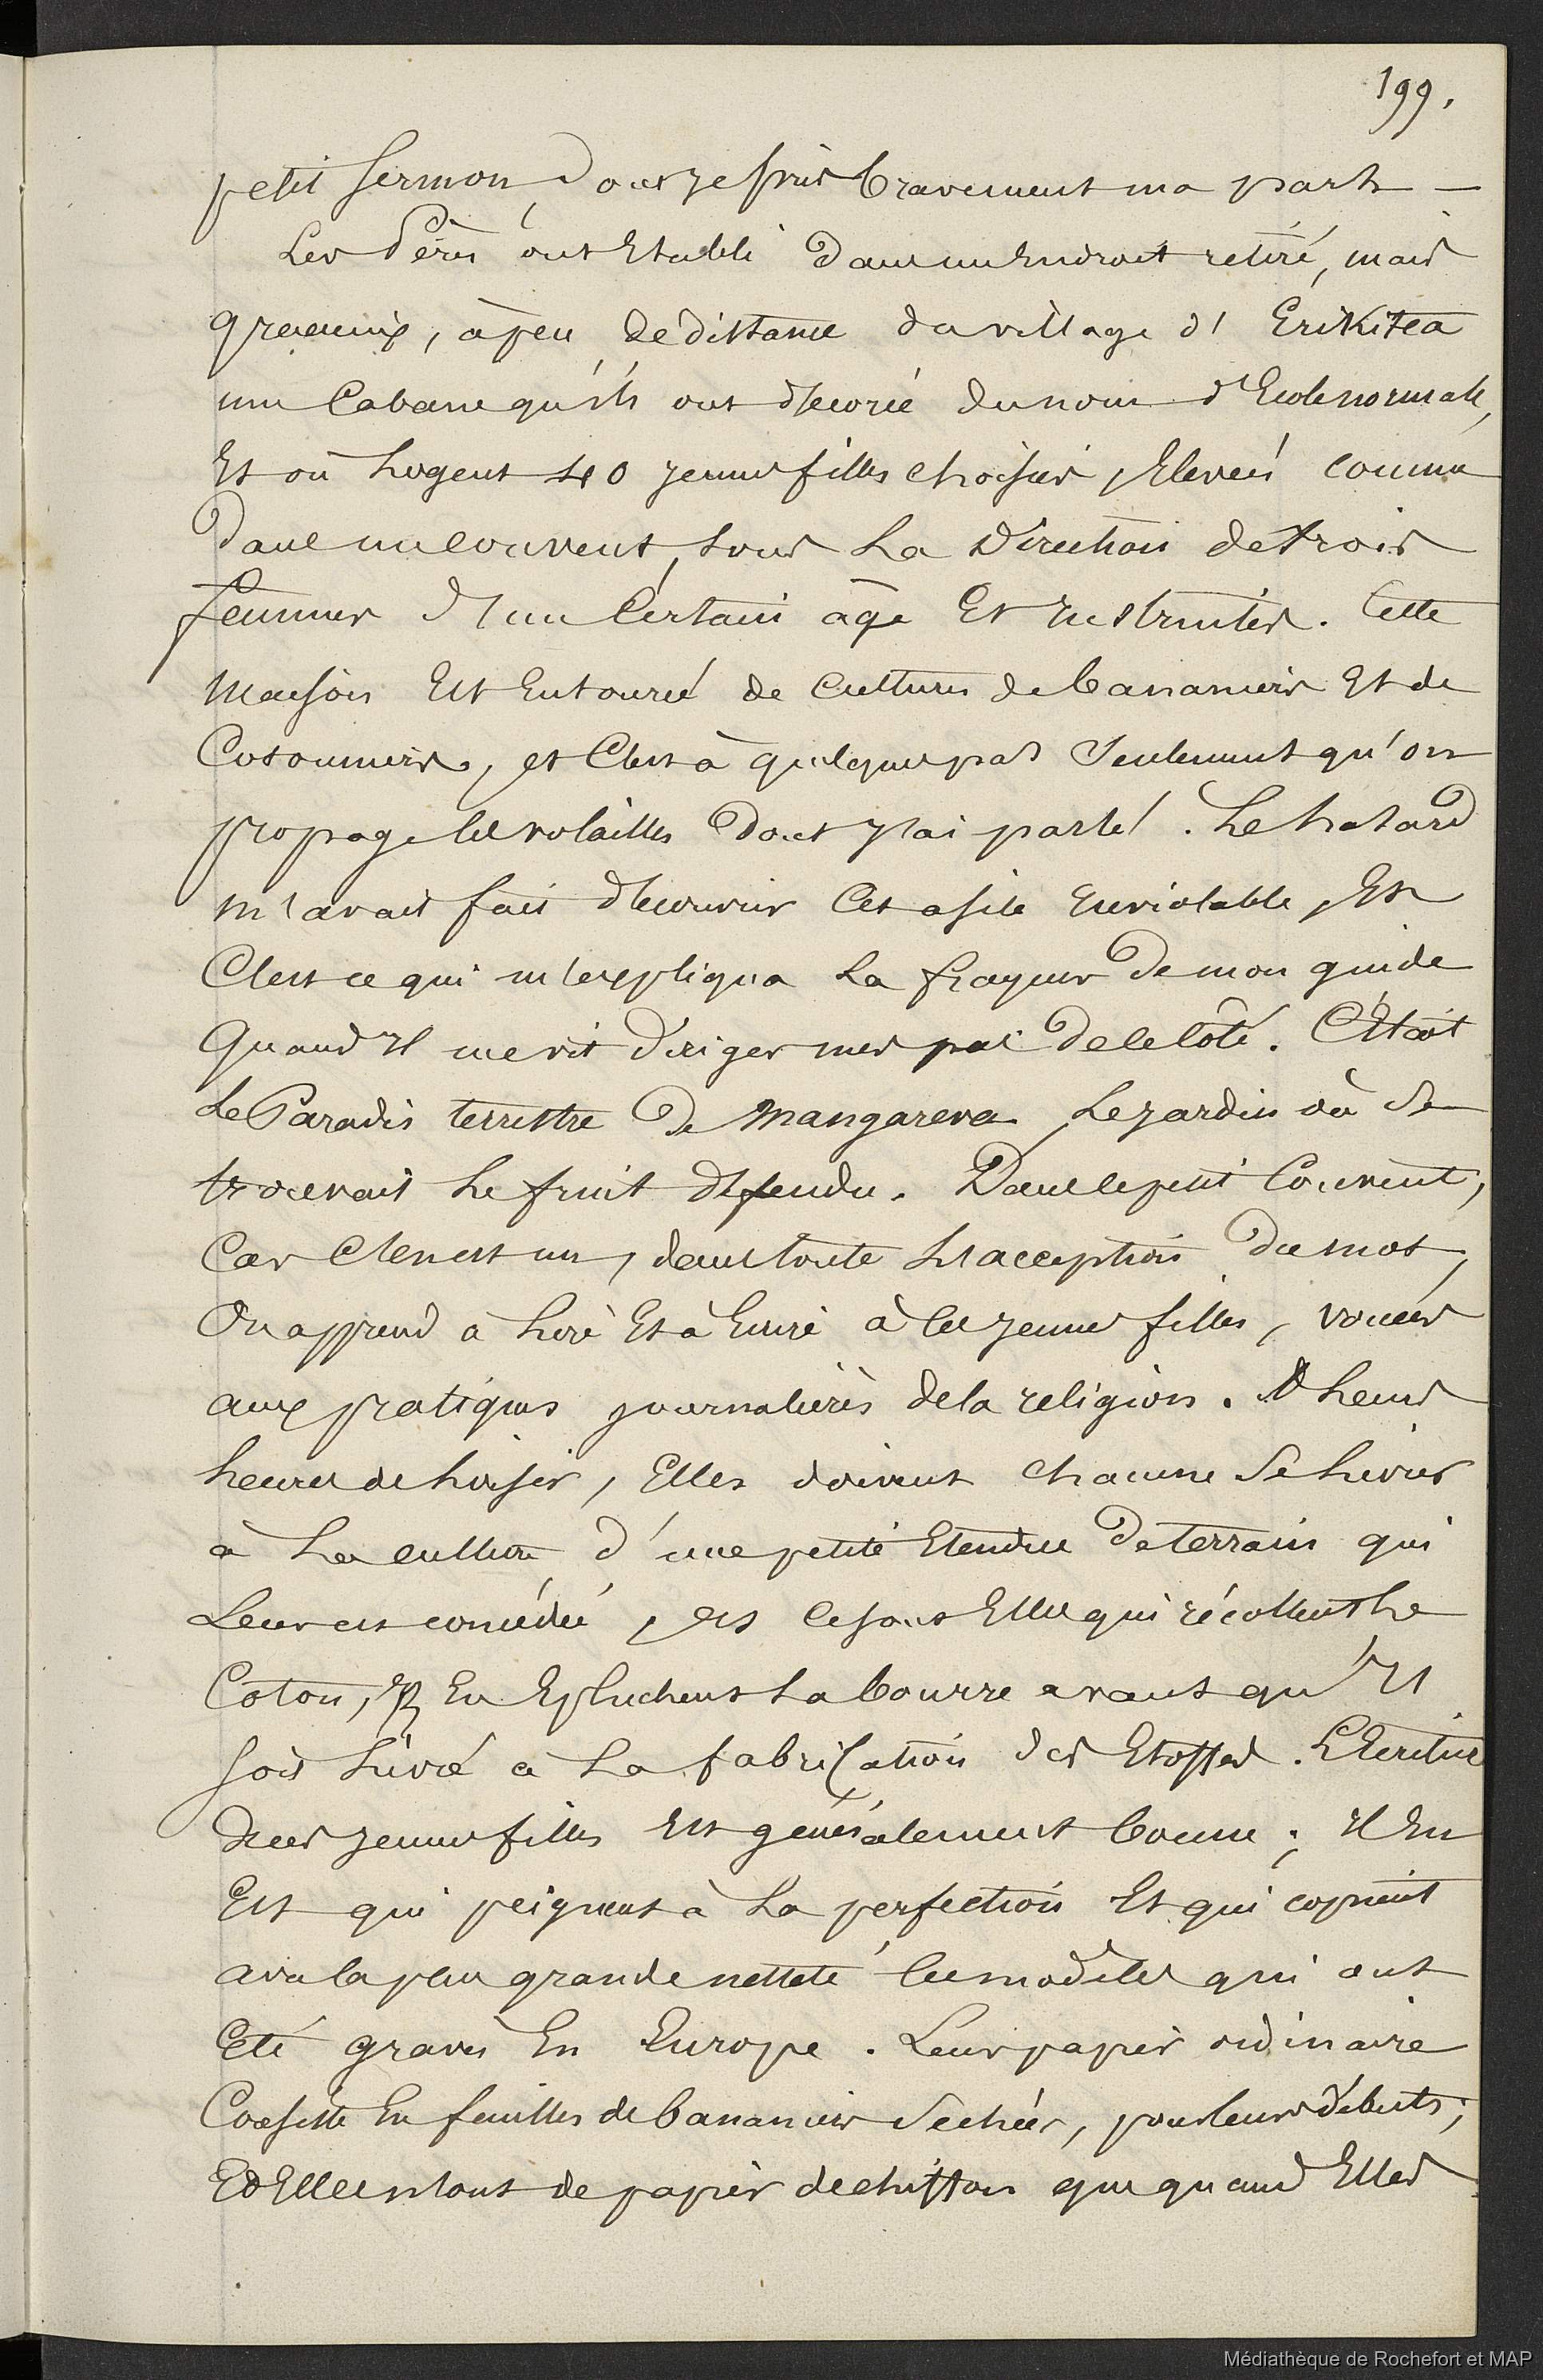 199.
petit sermon, dont je pris bravement ma part —
Les Pères ont Etabli dans un Endroit retiré, mais
gracieux, à peu de distance du village d' Erikitea
une Cabane qu'ils ont décorée du nom d'Ecole normale,
Et où logent 40 jeunes filles choisies, Elevées comme
dans un couvent, sous la Direction de trois
femmes d'un Certain âge Et Instruites. Cette
Maison Est Entourée de Cultures de bananiers Et de
Cotonniers, et C'est à quelques pas Seulement qu'on
propage les volailles dont j'ai parlé. Le hasard
m'avait fait découvrir Cet asile Inviolable, Et
C'est ce qui m'expliqua la frayeur de mon guide
Quand Il me vit diriger mes pas de ce côté. C'Etait
Le Paradis terrestre de Mangareva, Le jardin où Se
trouvait le fruit défendu. Dans le petit Couvent,
Car C'en est un, dans toute l'acception du mot,
On apprend à lire Et à Ecrire à ces jeunes filles, vouées
aux pratiques journalières de la religion. A leurs
heures de loisir, Elles doivent chacune Se livrer
à la culture d'une petite Etendue de terrain qui
Leur est concédée, Et ce sont Elles qui récoltent le
Coton, & En Epluchent la bourre avant qu'Il
soit livré à la fabrication des Etoffes. L'Ecriture
de ces jeunes filles Est généralement bonne; Il En
Est qui peignent à la perfection Et qui copient
avec la plus grande netteté les modèles qui ont
Eté gravés En Europe. Leur papier ordinaire
Consiste En feuilles de bananier Sechées, pour leurs débuts;
Et Elles n'ont de papier de chiffon que quand Elles
Médiathèque de Rochefort et MAP